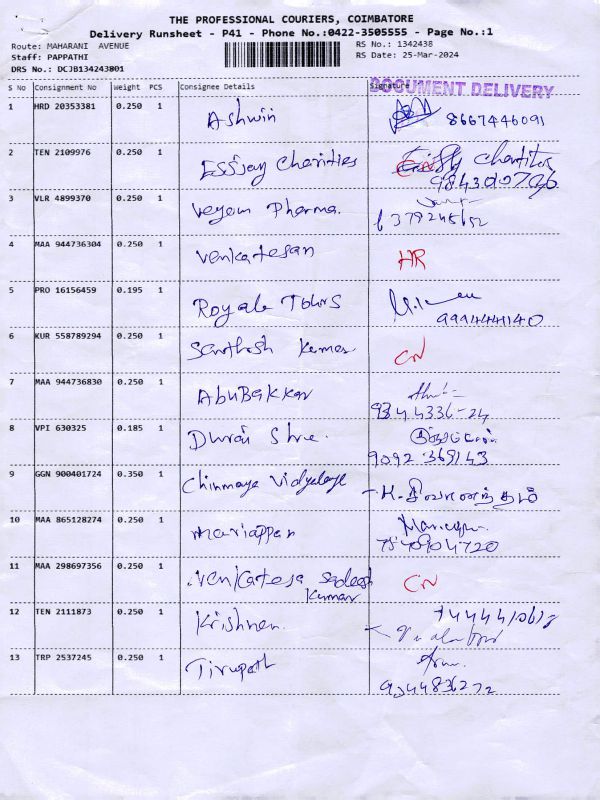 THE PROFESSIONAL COURIERS, COIMBATORE
Delivery Runsheet - P41 - Phone No.:0422-3505555 - Page No.:1
Route: MAHARANI AVENUE RS No.: 1342438
Staff: PAPPATHI RS Date: 25-Mar-2024
DRS No.: DCJB134243801
DOCUMENT DELIVERY
S No Consignment No Weight PCS Consignee Details Signature
1 HRD 20353381 0.250 1 Ashwin 8667446091
2 TEN 2109976 0.250 1 Essjay Charities
3 VLR 4899370 0.250 1 Veyam Pharma.
4 MAA 944736304 0.250 1 Venkatesan HR
5 PRO 16156459 0.195 1 Royale Tours 9994444140
6 KUR 558789294 0.250 1 Santhosh Kumar CN
7 MAA 944736830 0.250 1 AbuBakkar 98444336-24
8 VPI 630325 0.185 1 Durai Shre. 9092 369143
9 GGN 900401724 0.350 1 Chinmaya Vidyalaya
10 MAA 865128274 0.250 1 mariappan 7540904720
11 MAA 298697356 0.250 1 Venkatesa Sadeesh CN
Kumar
12 TEN 2111873 0.250 1 Krishnan.
13 TRP 2537245 0.250 1 Tirupath 9344836272